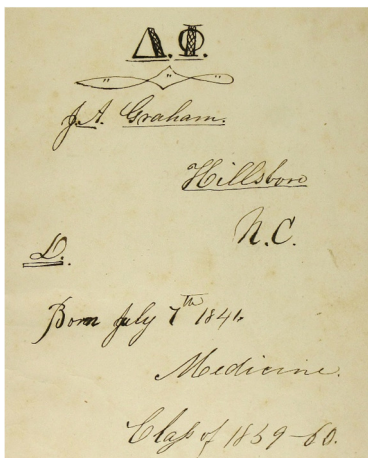 Δ.Φ.
J.A. Graham.
Hillsboro
N.C.
D.
Born July 7th 1841.
Medicine.
Class of 1859-60.